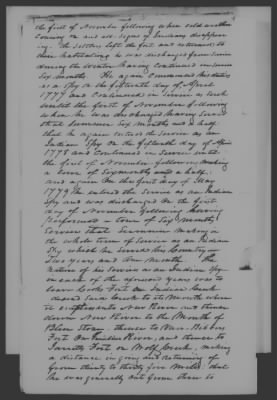 the first of November following when cold weather
coming on and all signs of Indians disappear
ing. The Settlers left the fort and returned to
their habitations, he was discharged from Service
during the Winter having continued in Service
Six months. He again commenced his duties
as a Spy on the fifteenth day of April
1777 and continued in Service as such
until the first of November following
when he was discharged having served
that Summer Six months and a half
that he again entered the Service as an
Indian Spy on the fifteenth day of April
1778 and continued in Service until
the first of November following making
a tour of Six months and a half.
and again on the first day of May
1779 he entered the Service as an Indian
Spy and was discharged on the first
day of November following having
performed a tour of Six months
Service that Summer making in
the whole term of Service as an Indian
Spy which he served his Country
Two years and One Month. The
nature of his Service as an Indian Spy
on each of the aforesaid years was to
leave Cooks Fort on Indian Creek
descend said Creek to its Mouth when
it empties into New River and thence
down New River to the Mouth of
Blue Stone, thence to
Fort On Indian River, and thence to
Fort on Wolf Creek, making
a distance in going and returning of
from thirty to thirty five Miles. that
he was generally out from three to